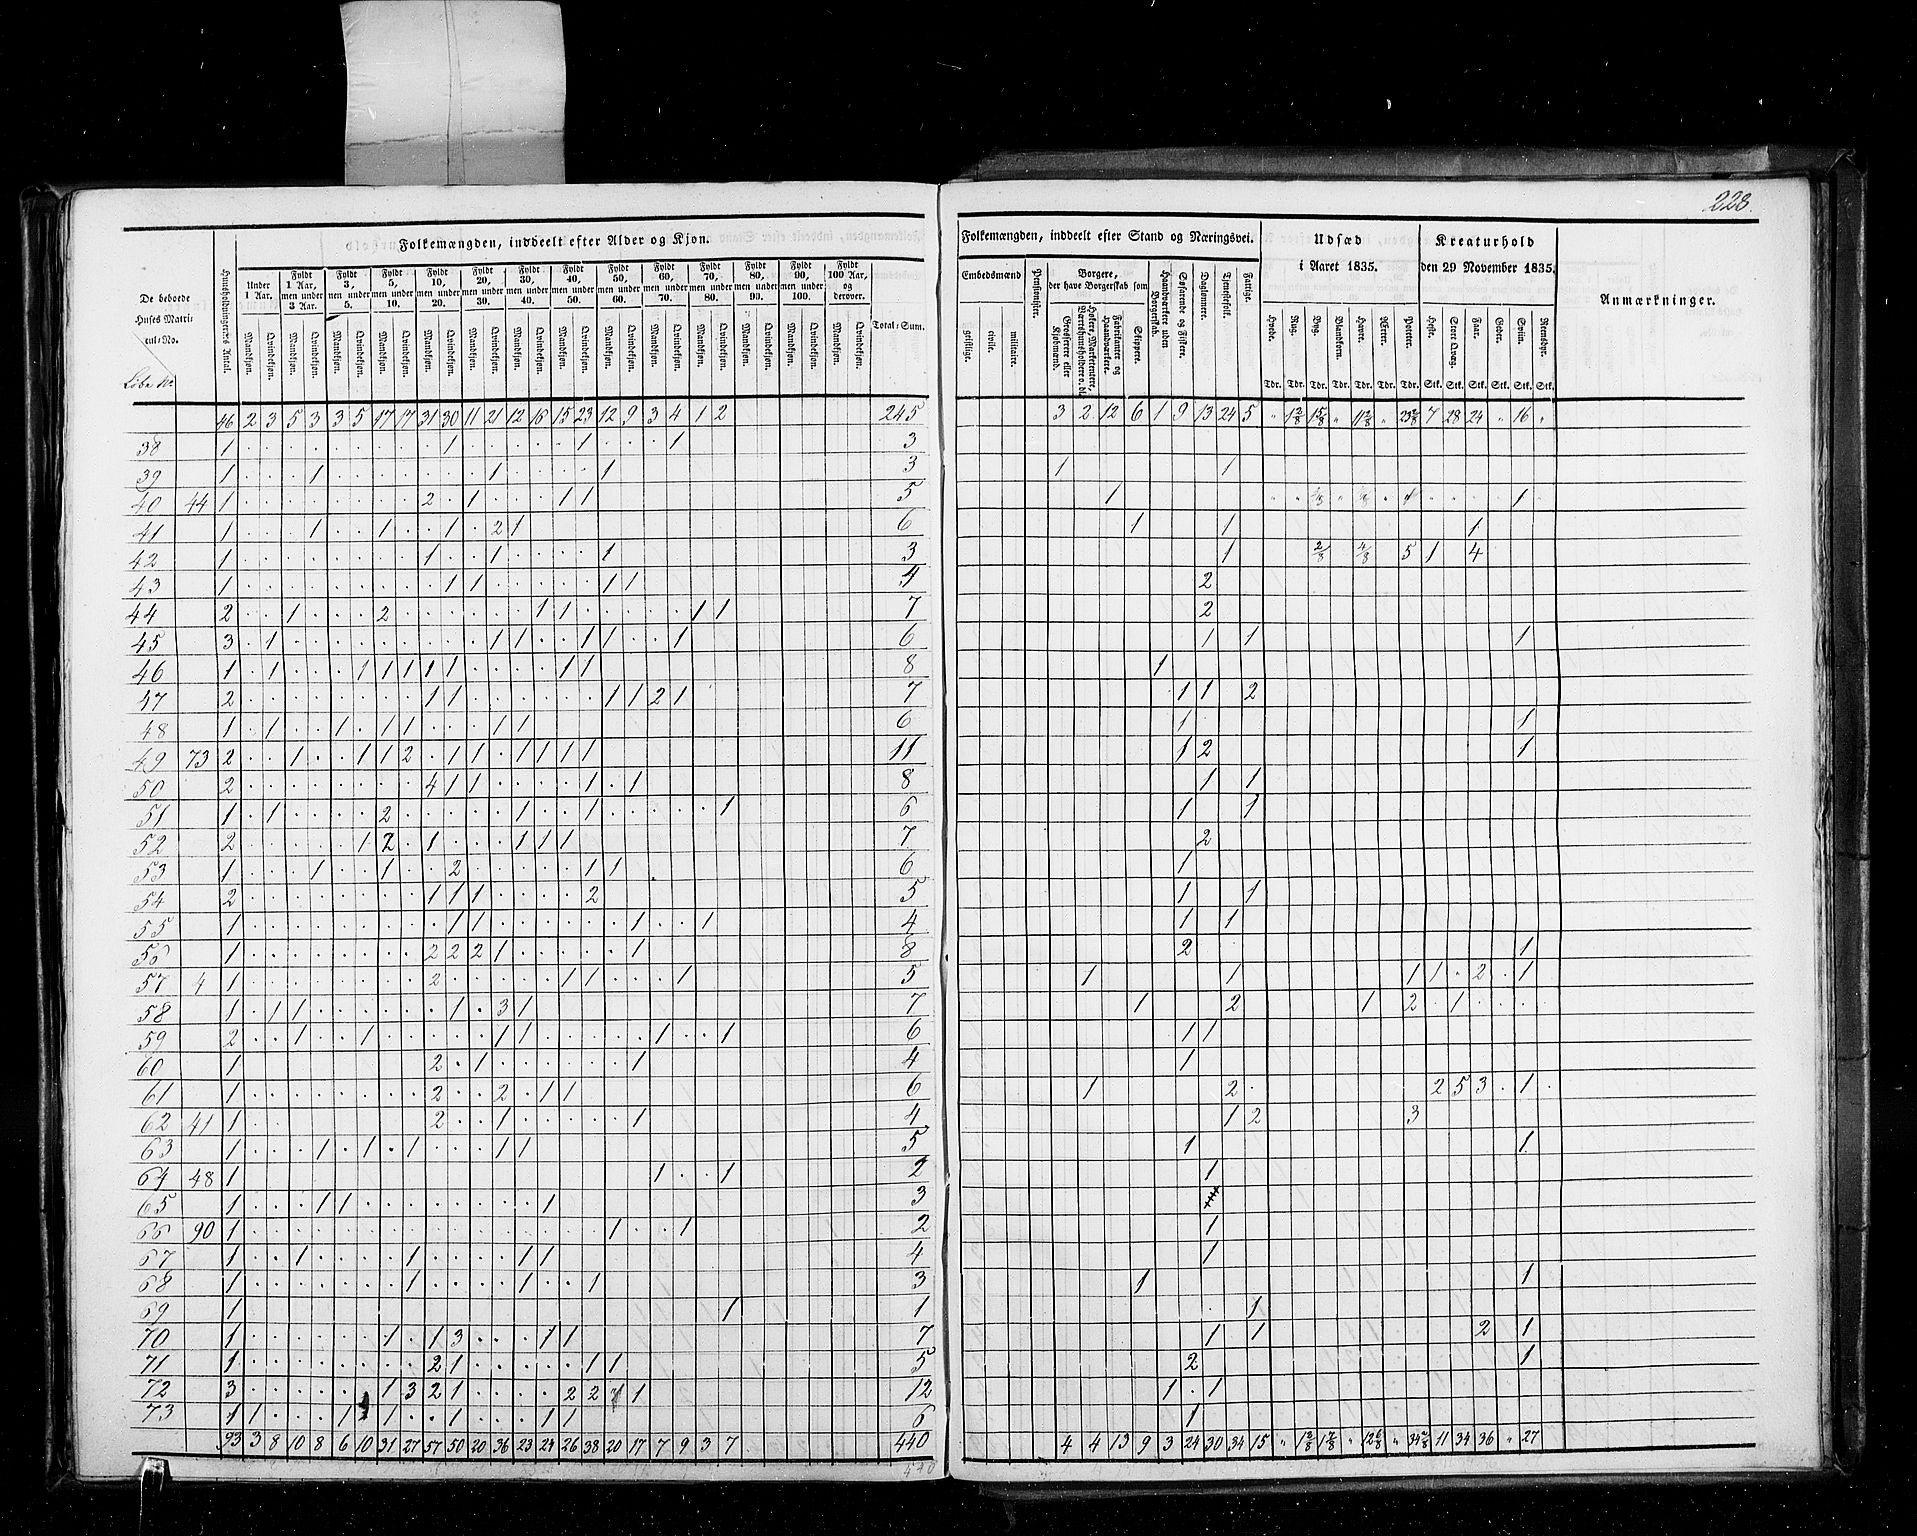 228.
Folkemængden, inddeelt efter Alder og Kjøn.
De beboede Huses Matricul-No.
Løbe No
Huusholdningernes Antal.
Under 1 Aar.
Fyldt 1 Aar, men under 3 Aar.
Fyldt 3, men under 5.
Fyldt 5, men under 10.
Fyldt 10, men under 20.
Fyldt 20, men under 30.
Fyldt 30, men under 40.
Fyldt 40, men under 50.
Fyldt 50, men under 60.
Fyldt 60, men under 70.
Fyldt 70, men under 80.
Fyldt 80, men under 90.
Fyldt 90, men under 100.
Fyldt 100 Aar, og derover.
Mandkjøn. Qvindekjøn.
Total-Sum.
46 2 3 5 3 3 5 17 17 31 30 11 21 12 10 15 23 12 9 3 4 1 2 245
38 1 1 1 1 3
39 1 1 1 1 3
40 44 1 2 1 1 1 5
41 1 1 1 1 2 1 6
42 1 1 1 1 3
43 1 1 1 1 1 4
44 2 1 2 1 1 1 1 7
45 3 1 1 1 1 1 1 6
46 1 1 1 1 1 1 1 1 1 8
47 2 1 1 1 1 2 1 7
48 1 1 1 1 1 1 1 6
49 73 2 1 1 1 2 1 1 1 1 1 1 11
50 2 4 1 1 1 1 8
51 1 1 2 1 1 1 6
52 2 1 2 1 1 1 1 7
53 1 1 1 2 1 1 6
54 2 1 1 1 2 5
55 1 1 1 1 1 4
56 1 2 2 2 1 1 8
57 4 1 2 1 1 1 5
58 1 1 1 1 3 1 7
59 2 1 1 1 1 1 1 6
60 1 2 1 1 4
61 1 2 2 1 1 6
62 41 1 2 1 1 4
63 1 1 1 1 1 1 5
64 48 1 1 1 2
65 1 1 1 1 3
66 90 1 1 1 2
67 1 1 1 1 1 4
68 1 1 1 1 3
69 1 1 1
70 1 1 1 3 1 1 7
71 1 2 1 1 1 5
72 3 1 3 2 1 2 2 1 12
73 1 1 1 1 1 1 1 6
93 3 8 10 8 6 10 31 27 57 50 20 36 23 24 26 38 20 17 7 9 3 7 440
440
Folkemængden, inddeelt efter Stand og Næringsvei.
Embedsmænd
geistlige. civile. militaire.
Pensionister.
Borgere, der have Borgerskab som
Grosserere eller Kjøbmænd.
Høkere, Marketentere, Værtshuusholdere o. dl.
Fabrikanter og Haandværkere.
Skippere.
Haandværkere uden Borgerskab.
Søfarende og Fiskere.
Daglønnere.
Tjenestefolk.
Fattige.
Udsæd i Aaret 1835.
Hvede. Rug. Byg. Blandkorn. Havre. Ærter. Poteter.
Tdr. Tdr. Tdr. Tdr. Tdr. Tdr. Tdr.
Kreaturhold den 29 November 1835.
Heste. Stort Qvæg. Faar. Geder. Sviin. Reensdyr.
Stk. Stk. Stk. Stk. Stk. Stk.
Anmærkninger.
3 2 12 6 1 9 13 24 5 " 1 2/8 1 5/8 " 11 2/8 " 23 2/8 7 28 24 " 16 "
1 1
1 1
1 1 1
1 2/8 4/8 5 1 4
2
2
1 1 1
1
1 1 2
1 1
1 2 1
1 1
1 1
2
1
1 1
1 1
2 1
1 1 1 1 2 1
1 2 1 2 1
1 1
1
1 2 2 5 3 1
1 2 3
1 1
1
1
1
1 1
1
1 1 2 1
2 1
1 1
1
4 4 13 9 3 24 30 34 15 " 1 2/8 1 7/8 " 12 6/8 " 34 2/8 11 34 36 " 27